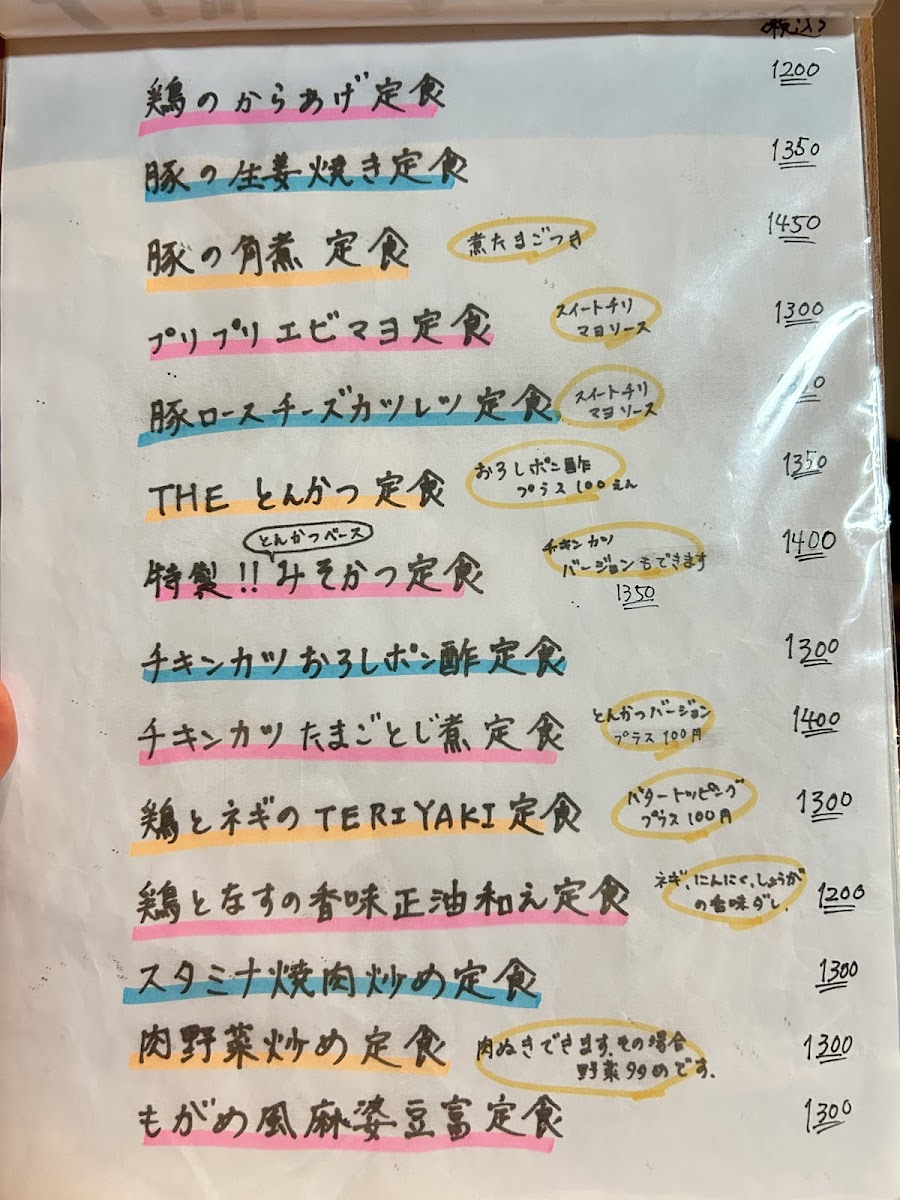 (税込)
鶏のからあげ定食 1200
豚の生姜焼き定食 1350
豚の角煮 定食 煮たまごつき 1450
プリプリエビマヨ定食 スイートチリ 1300
マヨソース
豚ロースチーズカツレツ定食 スイートチリ
マヨソース
THE とんかつ定食 おろしポン酢 1350
プラス100えん
とんかつベース
特製!!みそかつ定食 チキンカツ 1400
バージョンもできます
1350
チキンカツおろしポン酢定食 1300
チキンカツたまごとじ煮定食 とんかつバージョン 1400
プラス100円
鶏とネギのTERIYAKI定食 バタートッピング 1300
プラス100円
鶏となすの香味正油和え定食 ネギ、にんにく、しょうが 1200
の香味ダレ、
スタミナ焼肉炒め定食 1300
肉野菜炒め定食 肉ぬきできます。その場合 1300
野菜多めです。
もがめ風麻婆豆富定食 1300